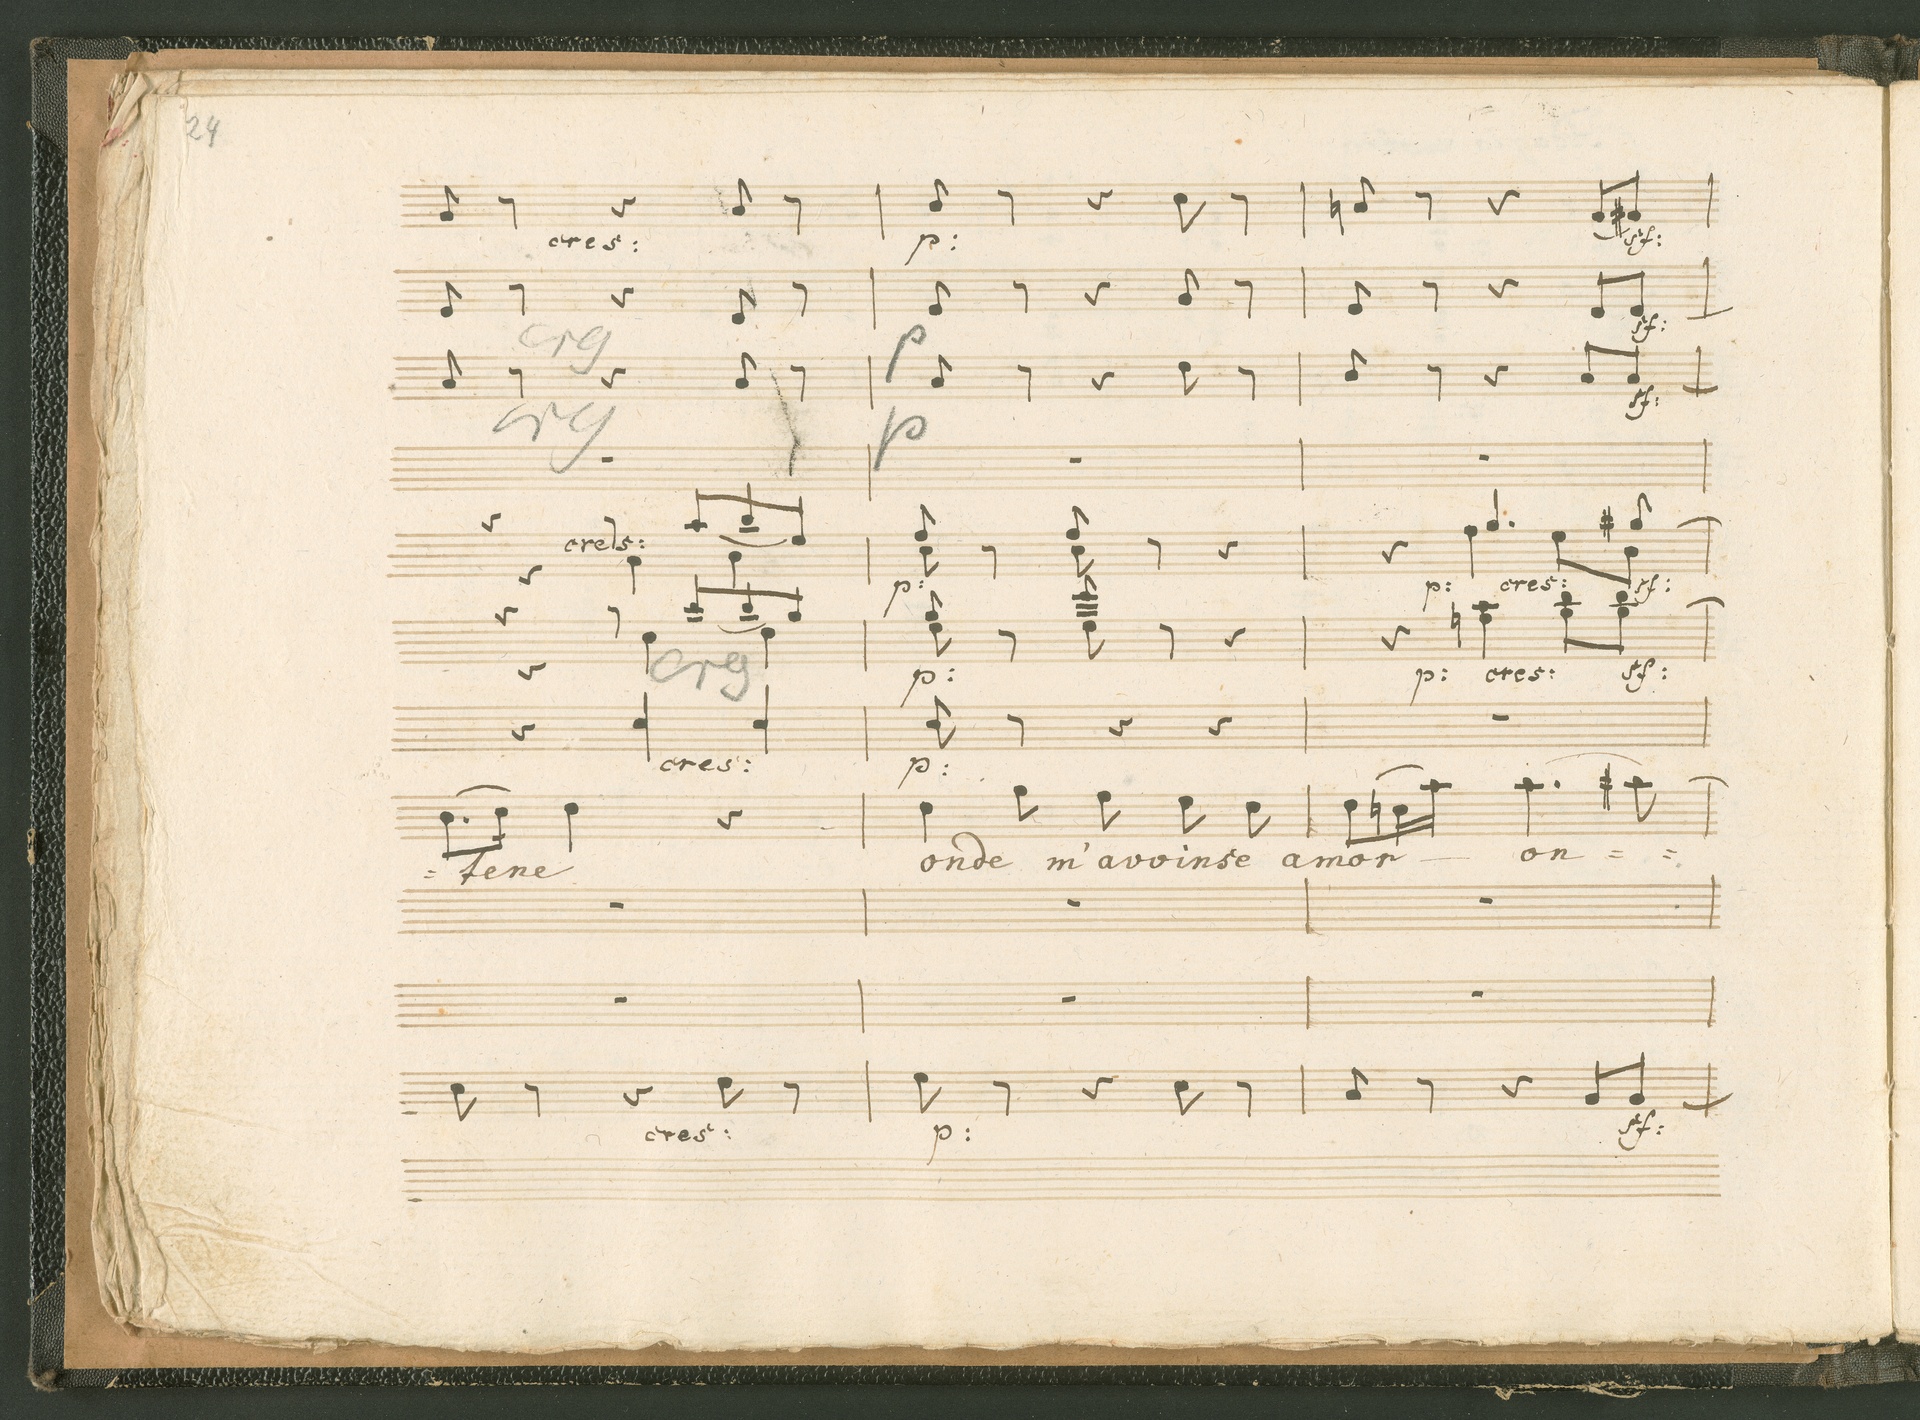 24
cres: p: sf:
sf:
crg p
sf:
crg p
cres:
p: p: cres: sf:
crg
p: p: cres: sf:
cres: p:
= tene onde m'avvinse amor — on = =
cres: p: sf: